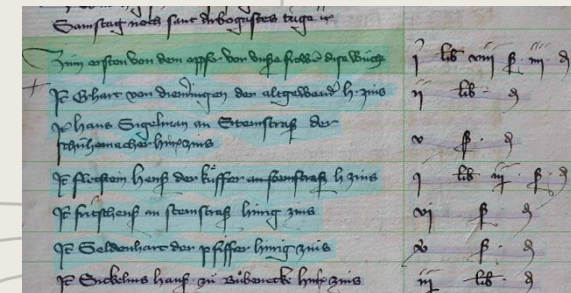 Samstag noch sant Arbogastes tage
Zum ersten von dem opfer von unser frowen dise wuch j lib viij ß iiij d
It Erhart von der altgewend h zins ij lib d
It hans Sigelman an Steinstraß der
schuhemacher huszins v ß d
It flecstein henß der küffer an steinstraß h zins j lib iij ß d
It fritschens an steinstraß hinig zins vj ß d
It Seldenhart der pfiffer hinig zins x ß d
It Sickelins hanß zu Bübenecke huszins iij lib d